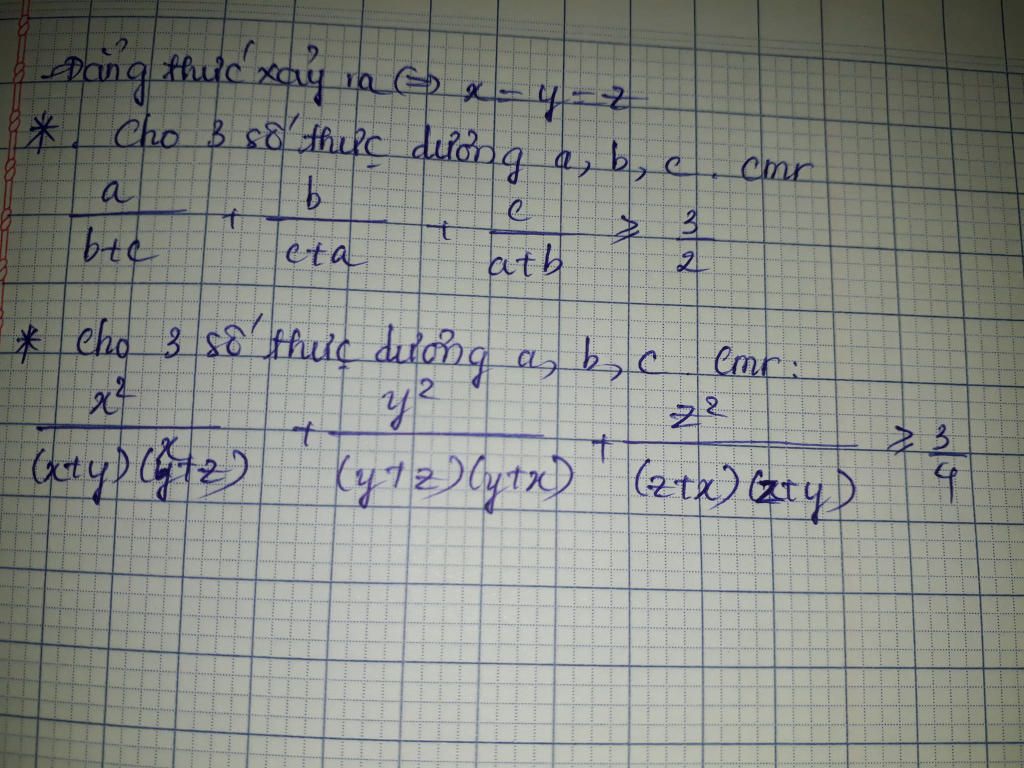 Đẳng thức xảy ra ⇔ x = y = z
* Cho 3 số thực dương a, b, c. cmr
a/(b+c) + b/(c+a) + c/(a+b) ≥ 3/2
* Cho 3 số thực dương a, b, c cmr:
x²/((x+y)(x+z)) + y²/((y+z)(y+x)) + z²/((z+x)(z+y)) ≥ 3/4